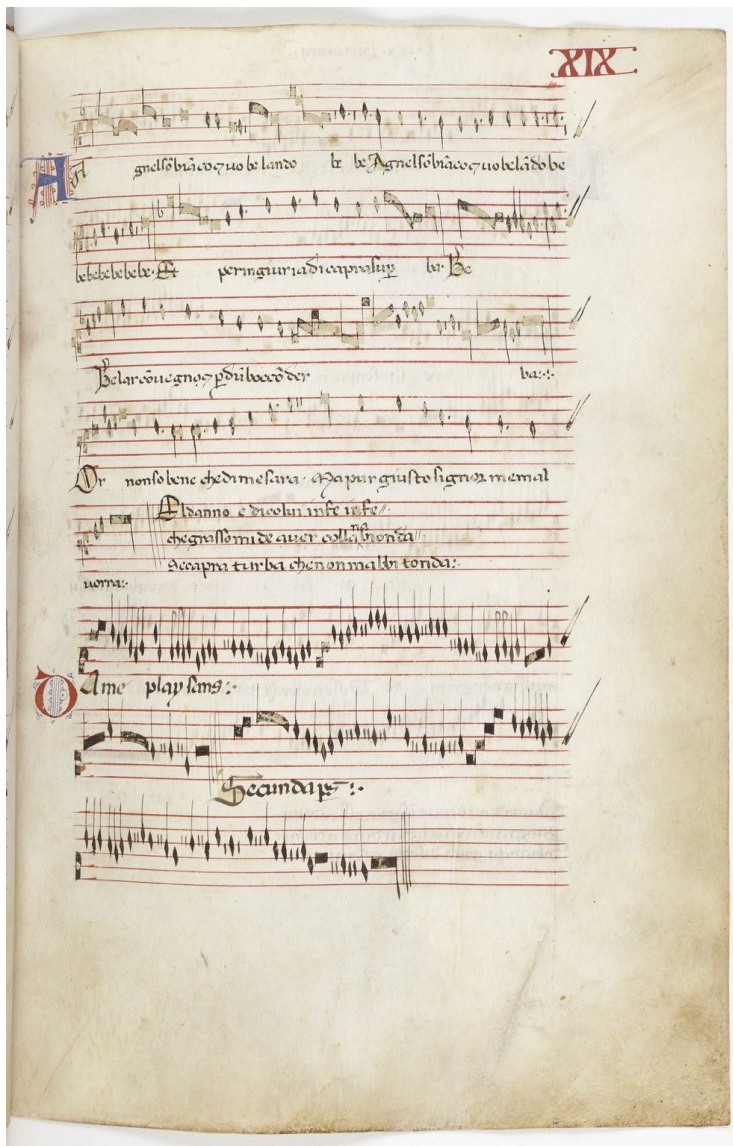 XIX
A gnel sõ biãco ꞇ uo belando be be Agnel sõ biãco ꞇ uo belãdo be
be be be be be be. Et per ingiuria di capra sup̱ ba. Be
Belar cõuegno ꞇ ꝑdũ boccõ der ba:
Or non so bene che di me sara. Ma pur giusto signor me mal
El danno e di colui
che grasso mi de auer
Se capra turba che non mabbi tonda:
uorra:
DAme playsans:
Secunda ps: